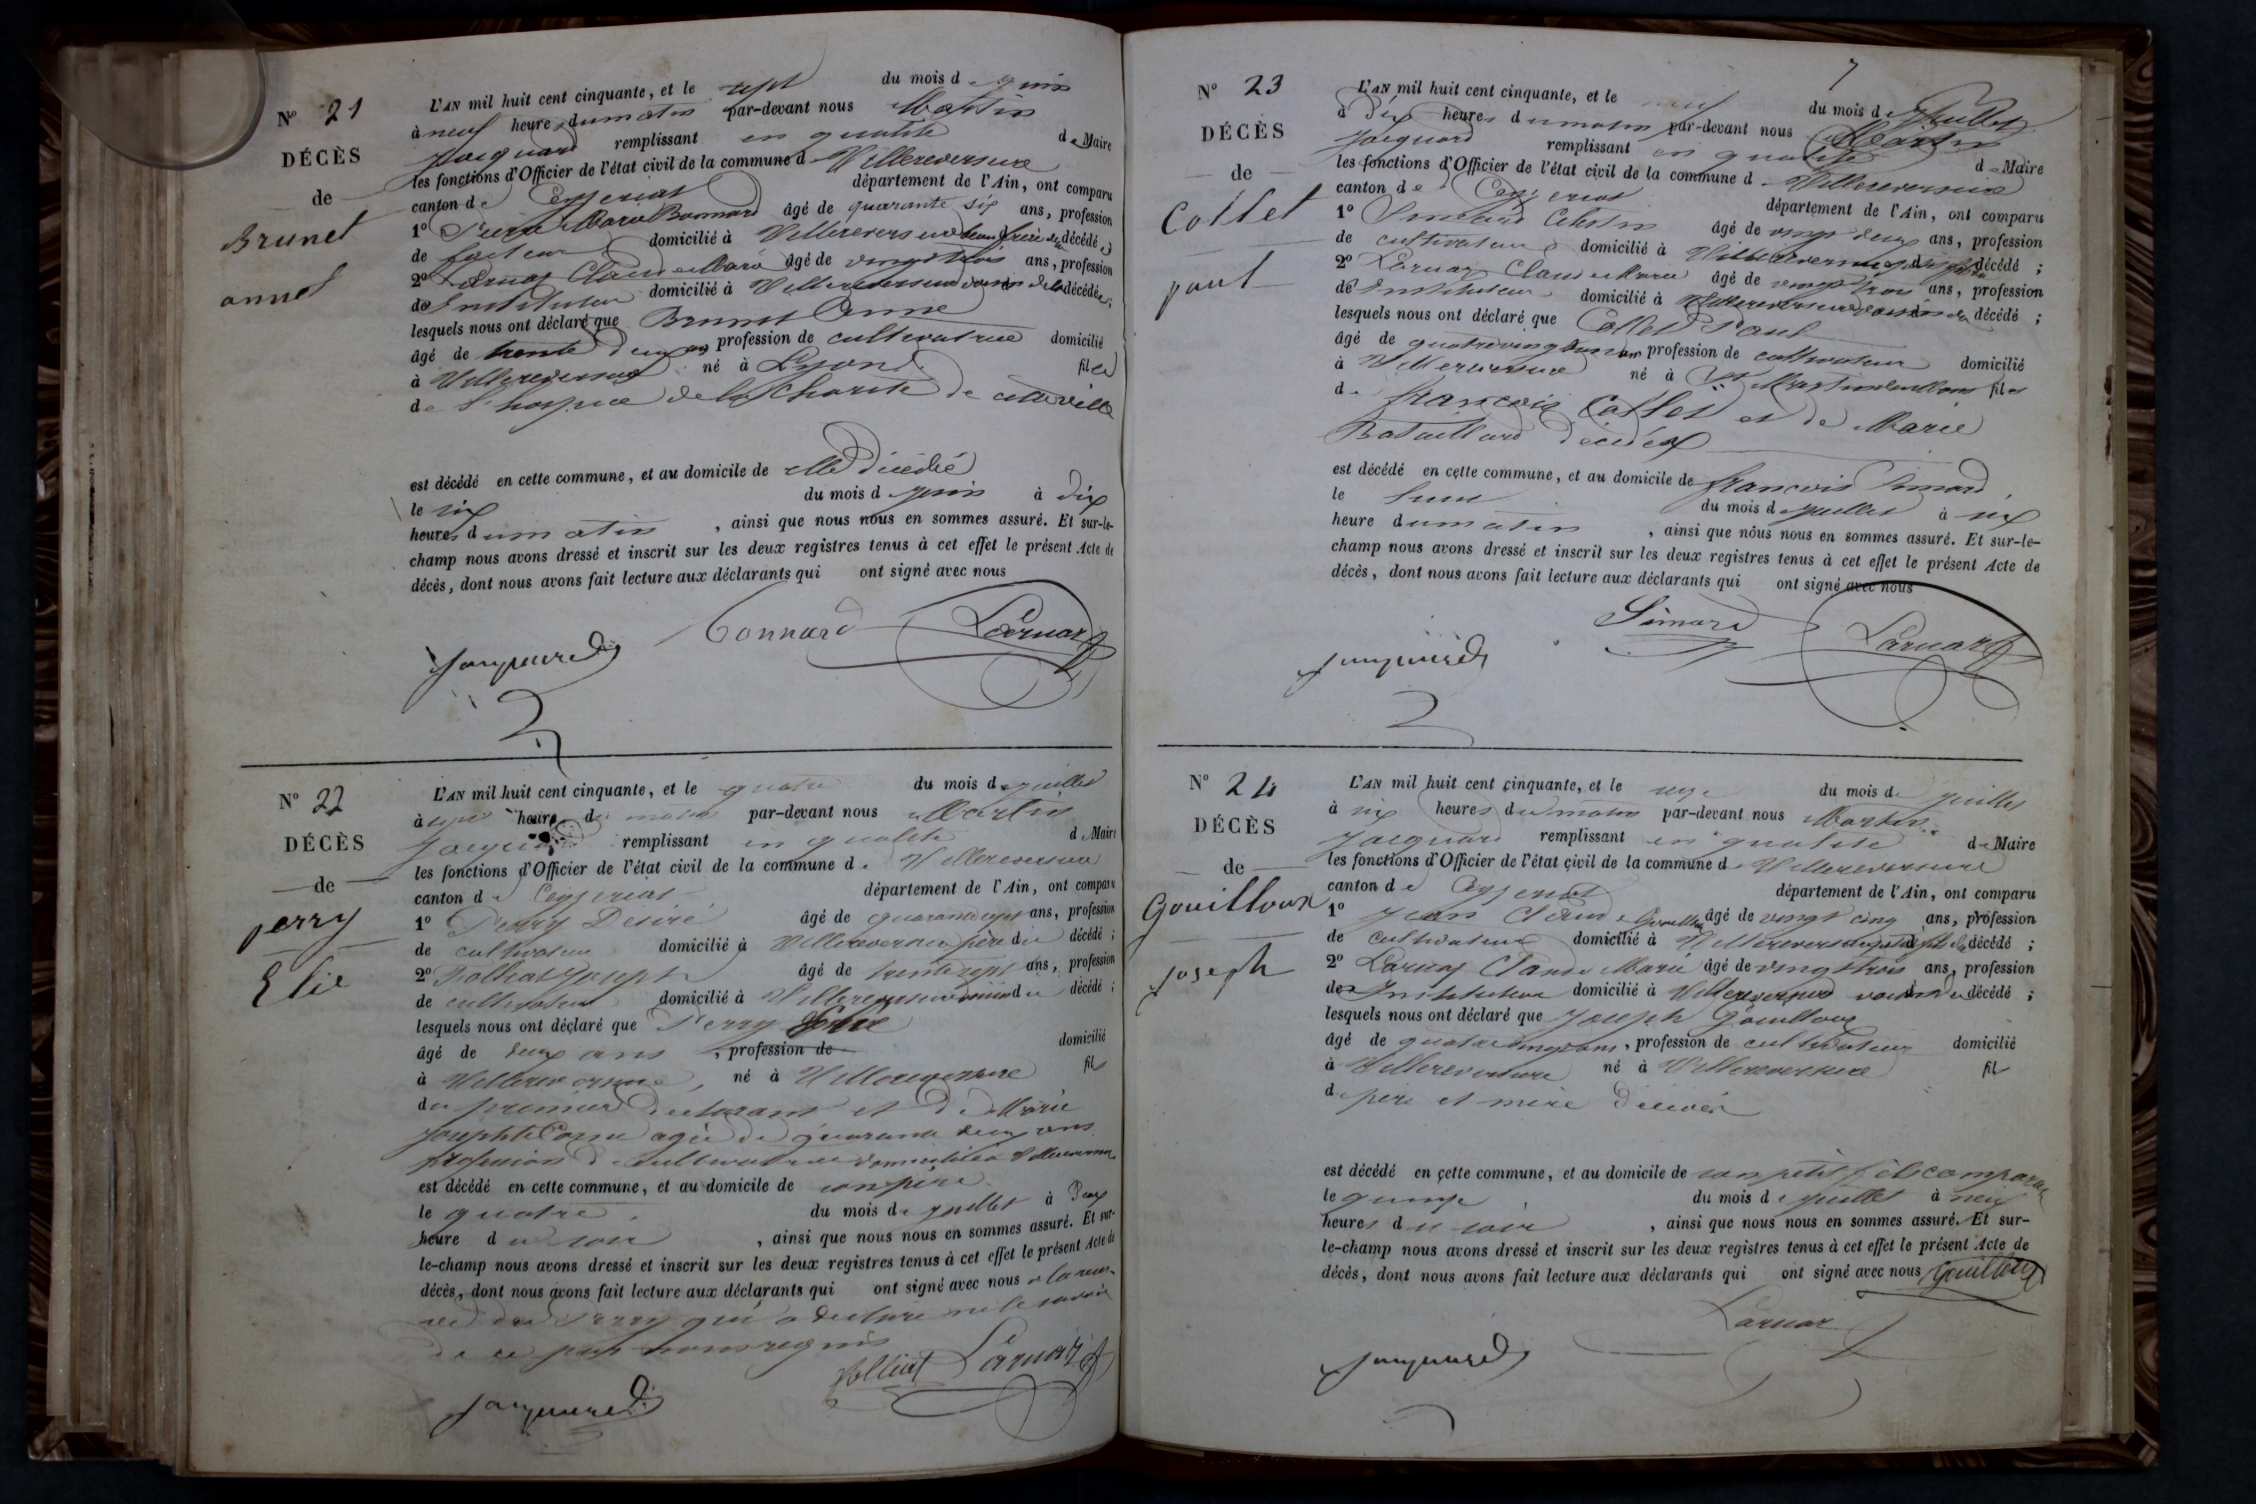 N° 21
DÉCÈS
de
Brunet
annet
L'AN mil huit cent cinquante, et le sept du mois de juin
à neuf heures du matin par-devant nous Martin
Jacquard remplissant en qualité de Maire
les fonctions d'Officier de l'état civil de la commune de Villereversure
canton de Ceyzeriat département de l'Ain, ont comparu
1° Pierre Marie Bonnard âgé de quarante six ans, profession
de facteur domicilié à Villereversure beau frère de décédée
2° Lornay Claude Marie âgé de vingt trois ans, profession
de Instituteur domicilié à Villereversure voisin de la décédée;
lesquels nous ont déclaré que Brunet Anne
âgé de trente deux ans profession de cultivatrice domicilié
à Villereversure né à Lyon fille
de l'hospice de la Charité de cette ville
est décédé en cette commune, et au domicile de elle décédée
le six du mois de juin à dix
heures du matin, ainsi que nous nous en sommes assuré. Et sur-le-
champ nous avons dressé et inscrit sur les deux registres tenus à cet effet le présent Acte de
décès, dont nous avons fait lecture aux déclarants qui ont signé avec nous
Jacquard Bonnard
N° 22
DÉCÈS
de
perry
Elie
L'AN mil huit cent cinquante, et le quatre du mois de juillet
à heure du matin par-devant nous Martin
Jacquard remplissant en qualité de Maire
les fonctions d'Officier de l'état civil de la commune de Villereversure
canton de Ceyzeriat département de l'Ain, ont comparu
1° Perry Desiré âgé de quarante sept ans, profession
de cultivateur domicilié à Villereversure père du décédé;
2° Joseph âgé de trente sept ans, profession
de cultivateur domicilié à Villereversure voisin du décédé;
lesquels nous ont déclaré que Perry Elie
âgé de deux ans, profession de domicilié
à Villereversure, né à Villereversure fils
du premier declarant et de Marie
Josephte agée de quarante deux ans
profession de cultivatrice domiciliée à Villereversure
est décédé en cette commune, et au domicile de son père
le quatre du mois de juillet à deux
heure du soir, ainsi que nous nous en sommes assuré. Et sur-
le-champ nous avons dressé et inscrit sur les deux registres tenus à cet effet le présent Acte de
décès, dont nous avons fait lecture aux déclarants qui ont signé avec nous
du Perry qui a declaré ne le savoir
de ce par nous requis
Jacquard
N° 23
DÉCÈS
de
Collet
paul
7
L'AN mil huit cent cinquante, et le neuf du mois de Juillet
à dix heures du matin par-devant nous Martin
Jacquard remplissant en qualité de Maire
les fonctions d'Officier de l'état civil de la commune de Villereversure
canton de Ceyzeriat département de l'Ain, ont comparu
1° Simard Celestin âgé de vingt deux ans, profession
de cultivateur domicilié à Villereversure décédé;
2° Lornay Claude Marie âgé de vingt trois ans, profession
de Instituteur domicilié à Villereversure voisin du décédé;
lesquels nous ont déclaré que Collet Paul
âgé de profession de cultivateur domicilié
à Villereversure né à fils
de françois Collet et de Marie
Bataillard décédés
est décédé en cette commune, et au domicile de françois Simard
le du mois de juillet à six
heure du matin, ainsi que nous nous en sommes assuré. Et sur-le-
champ nous avons dressé et inscrit sur les deux registres tenus à cet effet le présent Acte de
décès, dont nous avons fait lecture aux déclarants qui ont signé avec nous
Jacquard Simard
N° 24
DÉCÈS
de
Gouilloux
joseph
L'AN mil huit cent cinquante, et le du mois de juillet
à six heures du matin par-devant nous Martin
Jacquard remplissant en qualité de Maire
les fonctions d'Officier de l'état civil de la commune de Villereversure
canton de Ceyzeriat département de l'Ain, ont comparu
1° Jean Claude Gouilloux âgé de vingt cinq ans, profession
de cultivateur domicilié à Villereversure petit fils du décédé;
2° Lornay Claude Marie âgé de vingt trois ans, profession
de Instituteur domicilié à Villereversure voisin du décédé;
lesquels nous ont déclaré que Joseph Gouilloux
âgé de quatre vingt ans, profession de cultivateur domicilié
à Villereversure né à Villereversure fils
de père et mère décédés
est décédé en cette commune, et au domicile de son petit fils comparant
le quinze du mois de juillet à neuf
heures du soir, ainsi que nous nous en sommes assuré. Et sur-
le-champ nous avons dressé et inscrit sur les deux registres tenus à cet effet le présent Acte de
décès, dont nous avons fait lecture aux déclarants qui ont signé avec nous Gouilloux
Jacquard